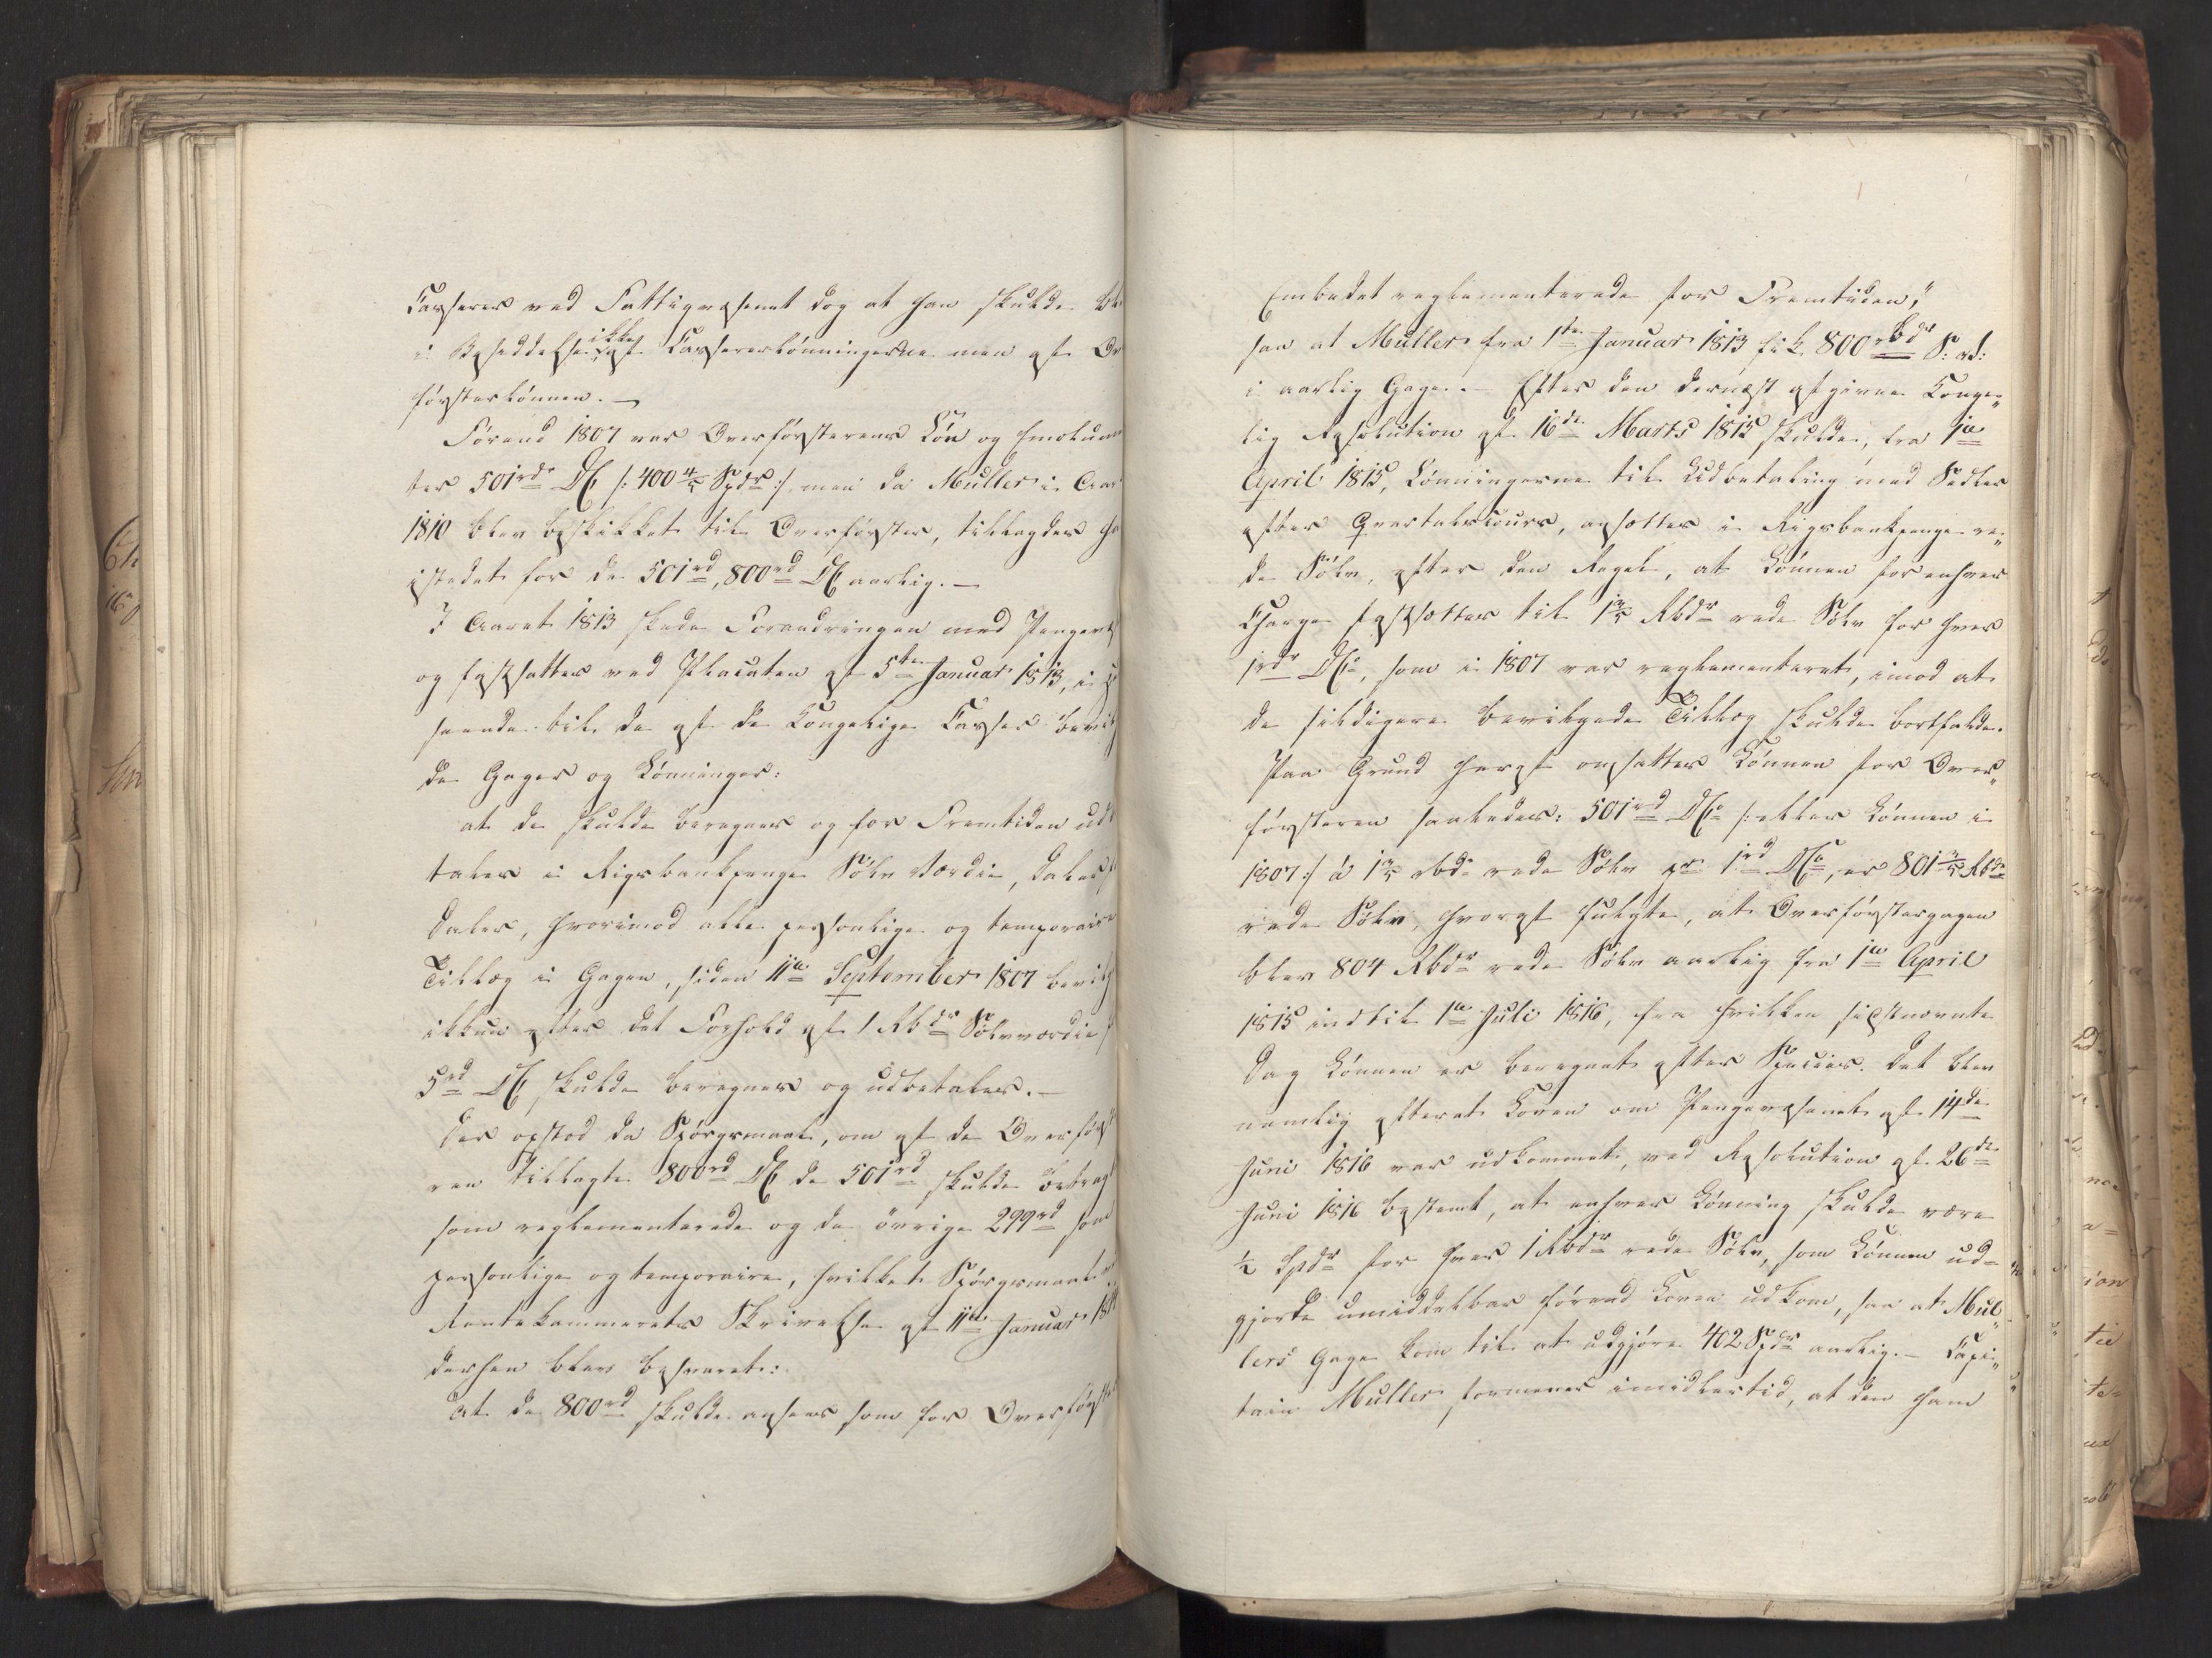 Casserer ved Fattigvæsenet dog at han skulde
i Besiddelse ikke af Cassererlønningerne men af Ov
førsterlønnen. —
Førend 1807 var Overførsterens Løn og Emolumen
ter 501rd DC /: 400 4/5 Spdr :/, men da Muller i Aar
1810 blev beskikket til Overførster, tillagdes ha
istedet for de 501rd, 800rd DC aarlig. —
I Aaret 1813 skede Forandringen med Pengev
og fastsattes ved Placaten af 5te Januar 1813, i
seende til de af de Kongelige Casser bevilg
de Gager og Lønninger:
at de skulde beregnes og for Fremtiden ud
tales i Rigsbankpenge Sølv Værdie, Daler
Daler, hvorimod alle personlige og temporaire
Tillæg i Gagen, siden 11te September 1807 bevilg
ikkun efter det Forhold af 1 Rbdr Sølvværdie
5rd DC skulde beregnes og udbetales. —
Der opstod da Spørgsmaal, om af de Overførst
ren tillagte 800rd DC de 501rd skulde betrag
som reglementerede og de øvrige 299rd som
personlige og temporaire, hvilket Spørgsmaal
Rentekammerets Skrivelse af 11te Januar 181
derhen blev besvaret:
At de 800rd skulde ansees som for Overførst
Embedet reglementerede for Fremtiden,"
saa at Muller fra 1te Januar 1813 fik 800 rbdr S: v:
i aarlig Gage. — Efter den dernæst afgivne Konge„
lig Resolution af 16de Marts 1815 skulde, fra 1te
April 1815, Lønningerne til Udbetaling med Sedler
efter Qvartalscours, ansættes i Rigsbankpenge re„
de Sølv, efter den Regel, at Lønnen for enhver
Charge fastsættes til 1 3/5 Rbdr rede Sølv for hver
1rdr DCt, som i 1807 var reglementeret, imod at
de sildigere bevilgede Tillæg skulde bortfalde.
Paa Grund heraf ansattes Lønnen for Over„
førsteren saaledes: 501rd DCt /: eller Lønnen i
1807 :/ á 1 3/5 rbdr rede Sølv pr 1rd DCt, er 801 3/5 Rbdr
rede Sølv, hvoraf fulgte, at Overførstergagen
blev 804 Rbdr rede Sølv aarlig fra 1te April
1815 indtil 1te Juli 1816, fra hvilken sidstnævnte
Dag Lønnen er beregnet efter Species. Det blev
nemlig efterat Loven om Pengevæsenet af 14de
Juni 1816 var udkommet, ved Resolution af 26de
Juni 1816 bestemt, at enhver Lønning skulde være
1/2 Spdr for hver 1 Rbdr rede Sølv, som Lønnen ud=
gjorde umiddelbar førend Loven udkom, saa at Mul„
lers Gage kom til at udgjøre 402 Spdr aarlig. — Capi„
tain Muller formener imidlertid, at den ham